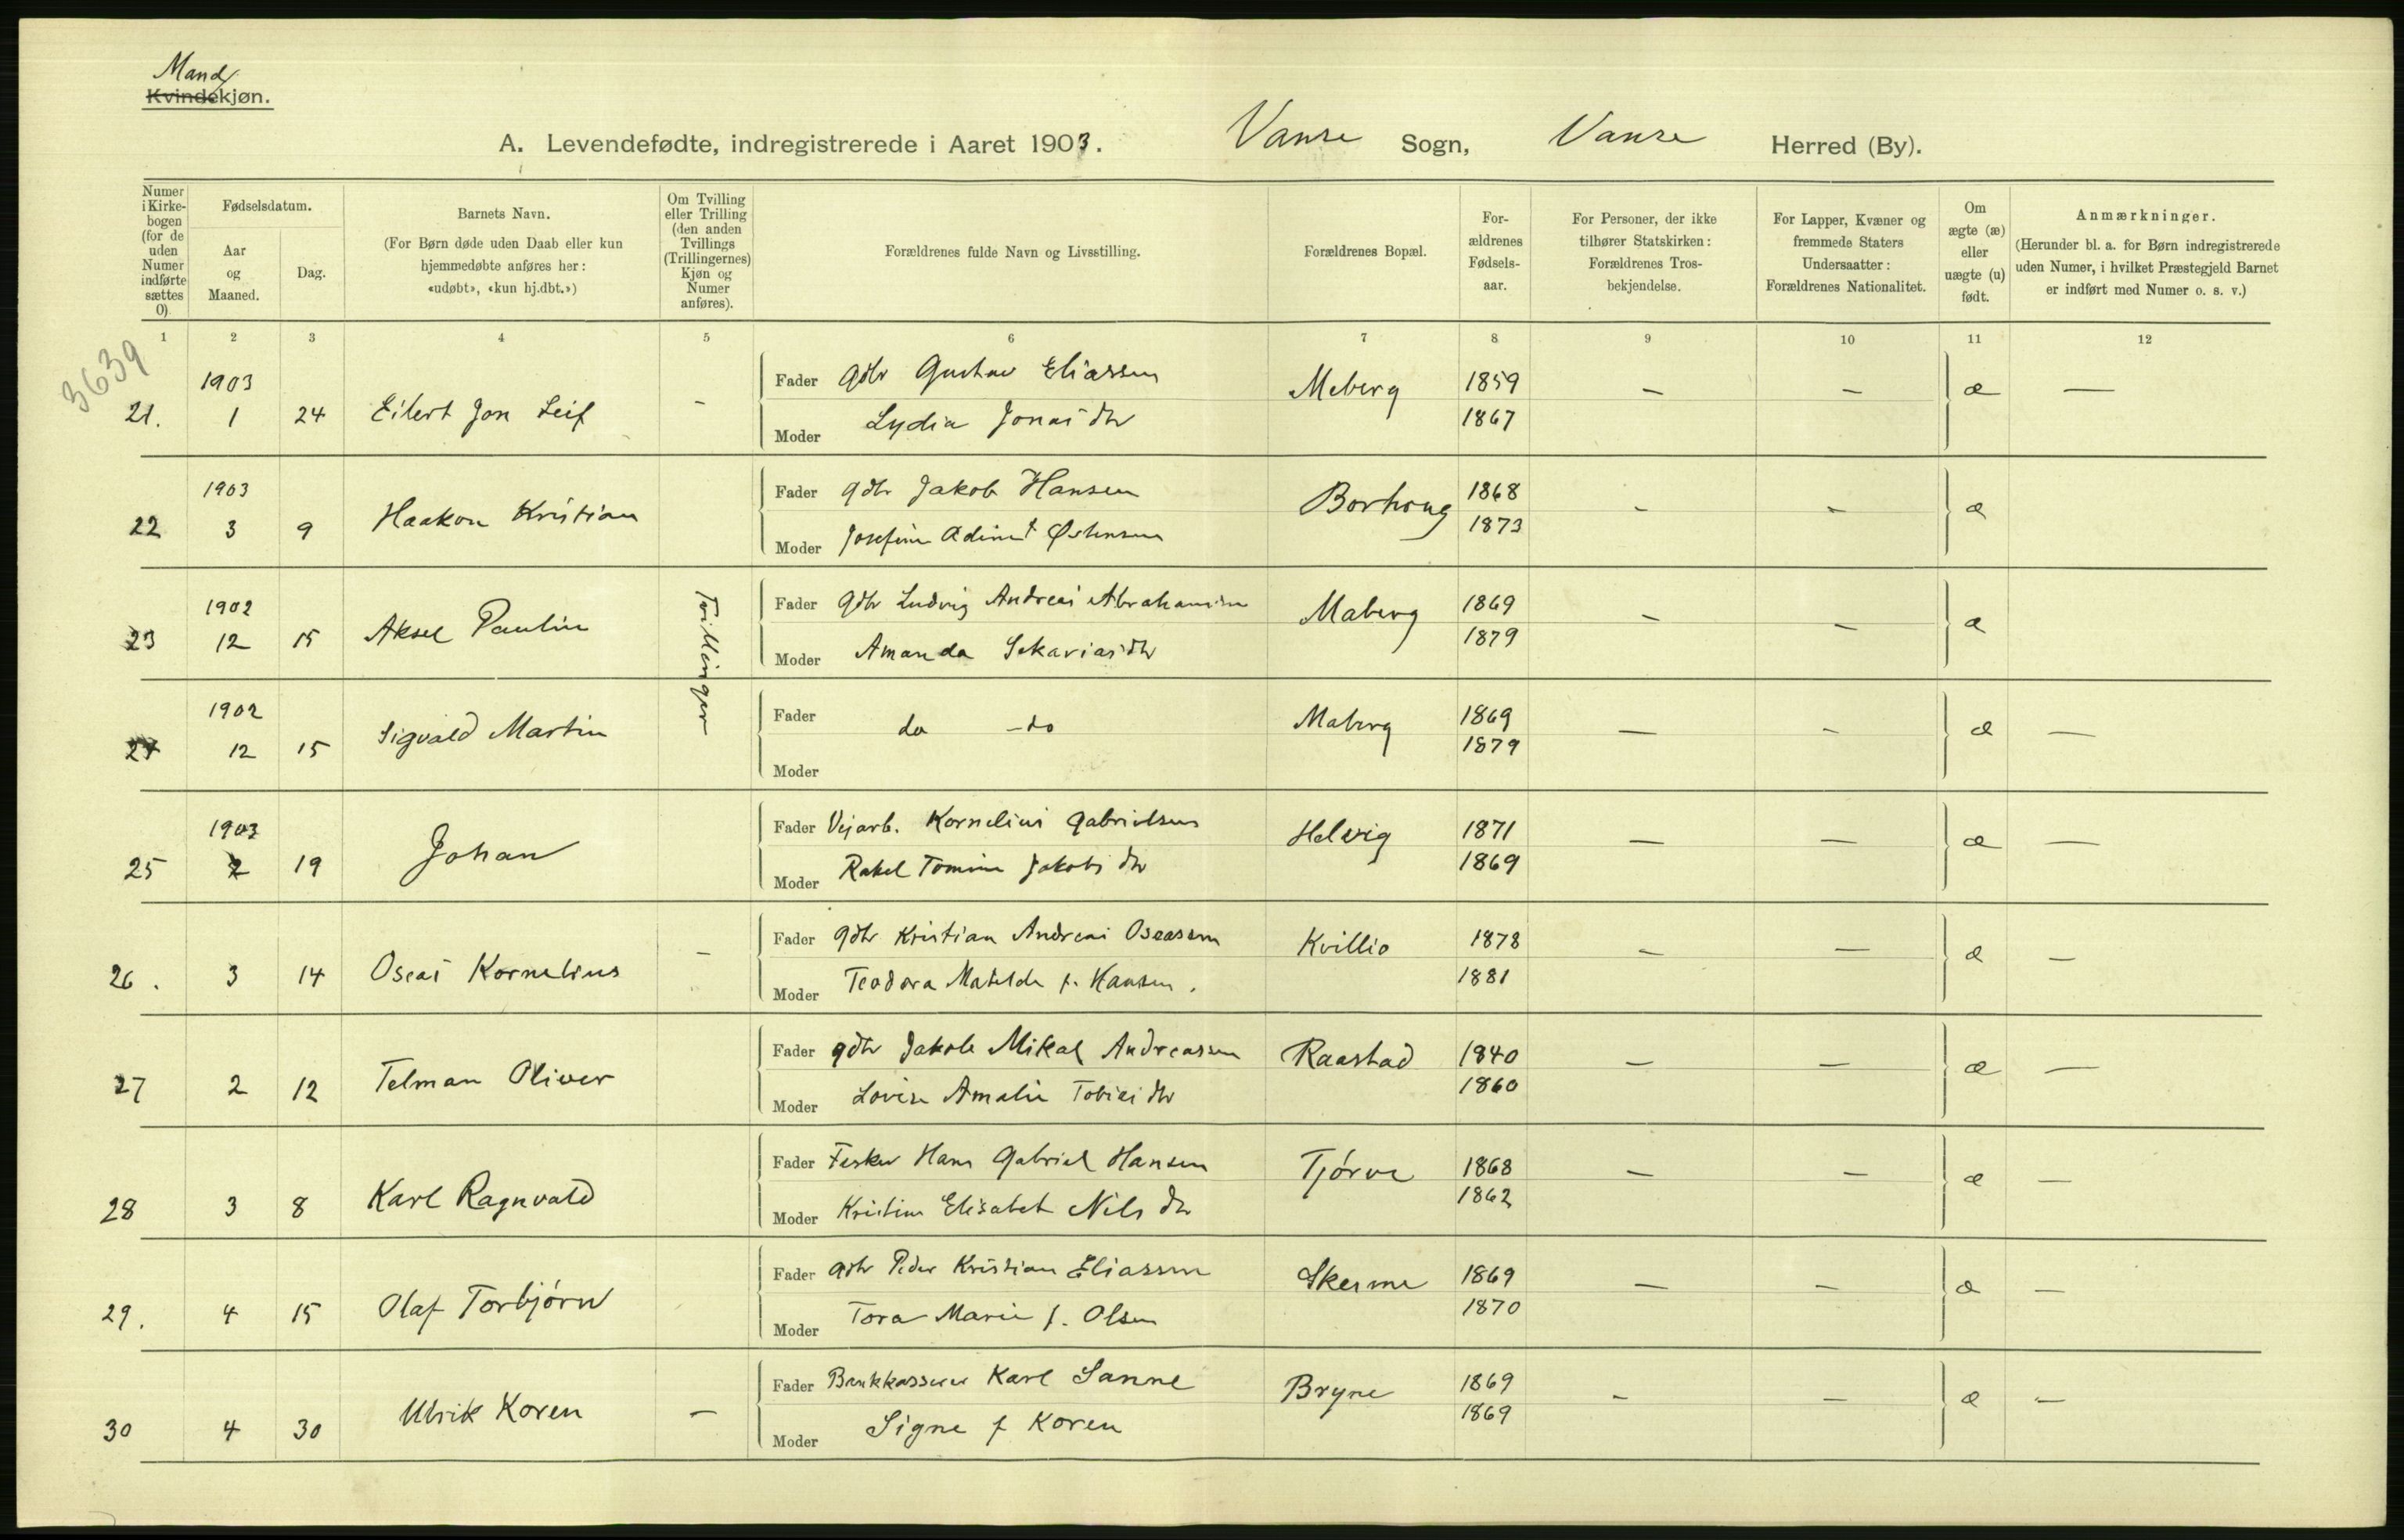 Mand
Kvindekjøn.
A. Levendefødte, indregistrerede i Aaret 1903. Vanse Sogn, Vanse Herred (By).
Numer i Kirkebogen (for de uden Numer indførte sættes 0)
Fødselsdatum.
Aar og Maaned.
Dag.
Barnets Navn.
(For Børn døde uden Daab eller kun hjemmedøbte anføres her: «udøbt», «kun hj.dbt.»)
Om Tvilling eller Trilling (den anden Tvillings (Trillingernes) Kjøn og Numer anføres).
Forældrenes fulde Navn og Livsstilling.
Forældrenes Bopæl.
Forældrenes Fødselsaar.
For Personer, der ikke tilhører Statskirken: Forældrenes Trosbekjendelse.
For Lapper, Kvæner og fremmede Staters Undersaatter: Forældrenes Nationalitet.
Om ægte (æ) eller uægte (u) født.
Anmærkninger.
(Herunder bl. a. for Børn indregistrerede uden Numer, i hvilket Præstegjeld Barnet er indført med Numer o. s. v.)
1 2 3 4 5 6 7 8 9 10 11 12
3639
1903 Fader Gdbr Gustav Eliassen Meberg 1859 — — æ —
21. 1 24 Eilert Jon Leif - Moder Lydia Jonasdtr 1867
1903 Fader gdbr Jakob Hansen Borhoug 1868 - - æ
22 3 9 Haakon Kristian Moder Josefine Adine f Østensen 1873
1902 Fader Gdbr Ludvig Andreas Abrahamsen Maberg 1869 — — æ
23 12 15 Aksel Paulin Moder Amanda Sakariasdtr 1879
Tvillinger
1902 Fader do - do Maberg 1869 — - æ —
24 12 15 Sigvald Martin Moder 1879
1903 Fader Vejarb. Kornelius Gabrielsen Helvig 1871 — — æ —
25 2 19 Johan Moder Rakel Tomine Jakobsdtr 1869
Fader gdbr Kristian Andreas Oseassen Kvillio 1878 — — æ —
26. 3 14 Oseas Kornelius - Moder Teodora Matilde f. Hansen. 1881
Fader gdbr Jakob Mikal Andreassen Raastad 1840 — — æ —
27 2 12 Telman Oliver Moder Lovise Amalie Tobiasdtr 1860
Fader Fisker Hans Gabriel Hansen Tjørve 1868 — — æ —
28 3 8 Karl Ragnvald Moder Kristine Elisabet Nilsdtr 1862
Fader gdbr Peder Kristian Eliassen Skeime 1869 — — æ —
29. 4 15 Olaf Torbjørn Moder Tora Marie f. Olsen 1870
Fader Bankkasserer Karl Sanne Bryne 1869 - — æ —
30 4 30 Ulrik Koren — Moder Signe f Koren 1869